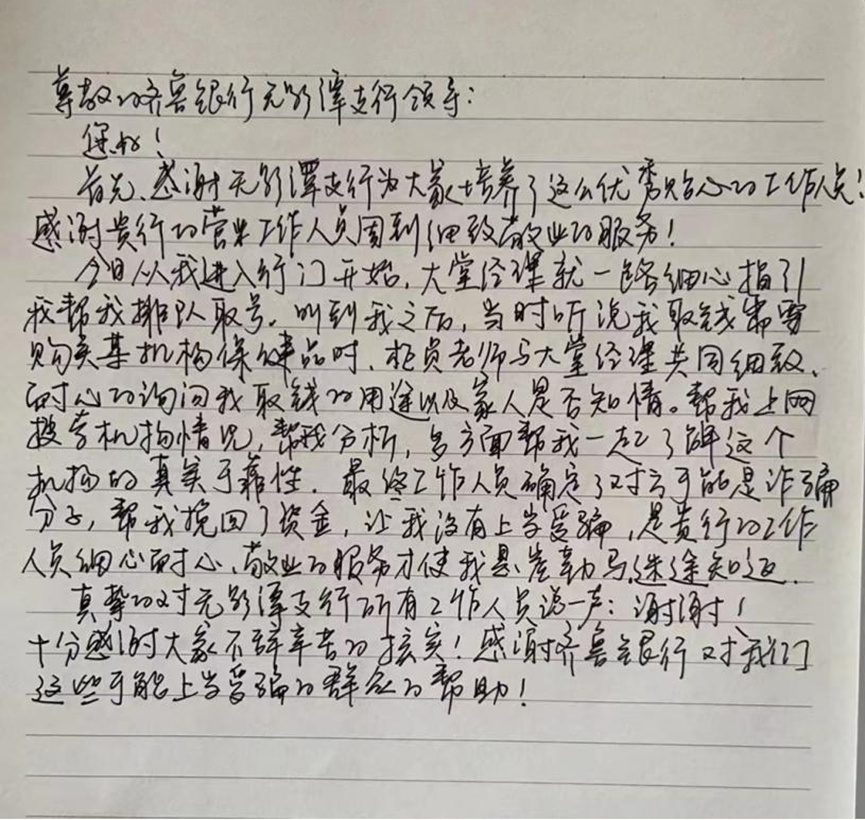 尊敬的齐鲁银行无影潭支行领导：
您好！
首先，感谢无影潭支行为大家培养了这么优秀贴心的工作人员！
感谢贵行的营业工作人员周到细致敬业的服务！
今日从我进入行门开始，大堂经理就一路细心指引
我帮我排队取号。叫到我之后，当时听说我取钱需要
购买某机构保健品时，柜员老师与大堂经理共同细致、
耐心的询问我取钱的用途以及家人是否知情。帮我上网
搜寻机构情况，帮我分析，多方面帮我一起了解这个
机构的真实可靠性．最终工作人员确定了对方可能是诈骗
分子，帮我挽回了资金，让我没有上当受骗，是贵行的工作
人员细心耐心、敬业的服务才使我悬崖勒马迷途知返．
真挚的对无影潭支行所有工作人员说一声：谢谢！
十分感谢大家不辞辛苦的核实！感谢齐鲁银行对我们
这些可能上当受骗的群众的帮助！